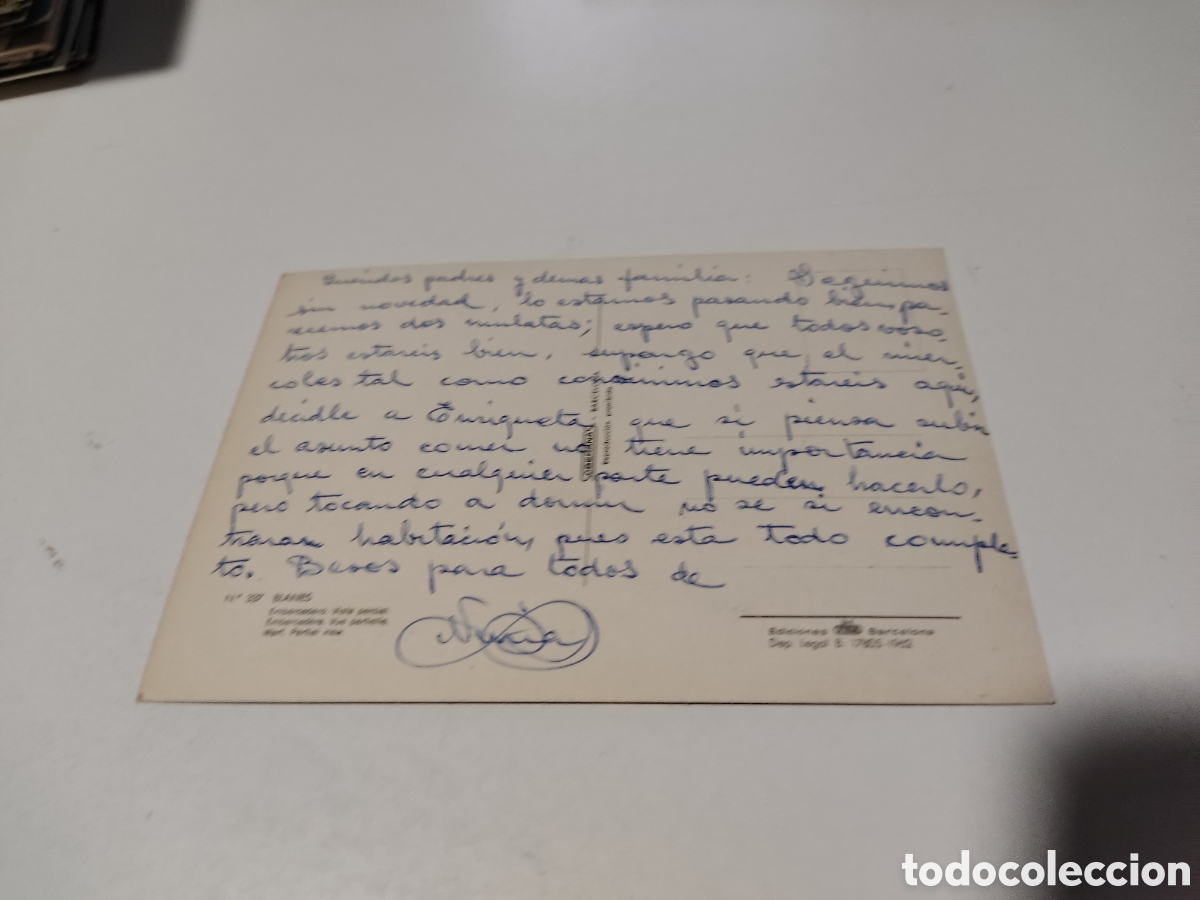 Queridos padres y demas familia: Seguimos
sin novedad, lo estamos pasando bien, pa-
recemos dos mulatas; espero que todos voso-
tros estareis bien, supongo que, el mier-
coles tal como convinimos estareis aqui,
decidle a Enriqueta que si piensa subir
el asunto comer no tiene importancia
porque en cualquier parte pueden hacerlo,
pero tocando a dormir no se si encon-
traran habitación, pues esta todo comple-
to. Besos para todos de
Nuria
N.º BLANES
Embarcadero. Vista parcial
Embarcadère. Vue partielle
Wharf. Partial view
BARCELONA
Reproducción prohibida
Ediciones Barcelona
Dep. legal B. 17805-1962
todocoleccion